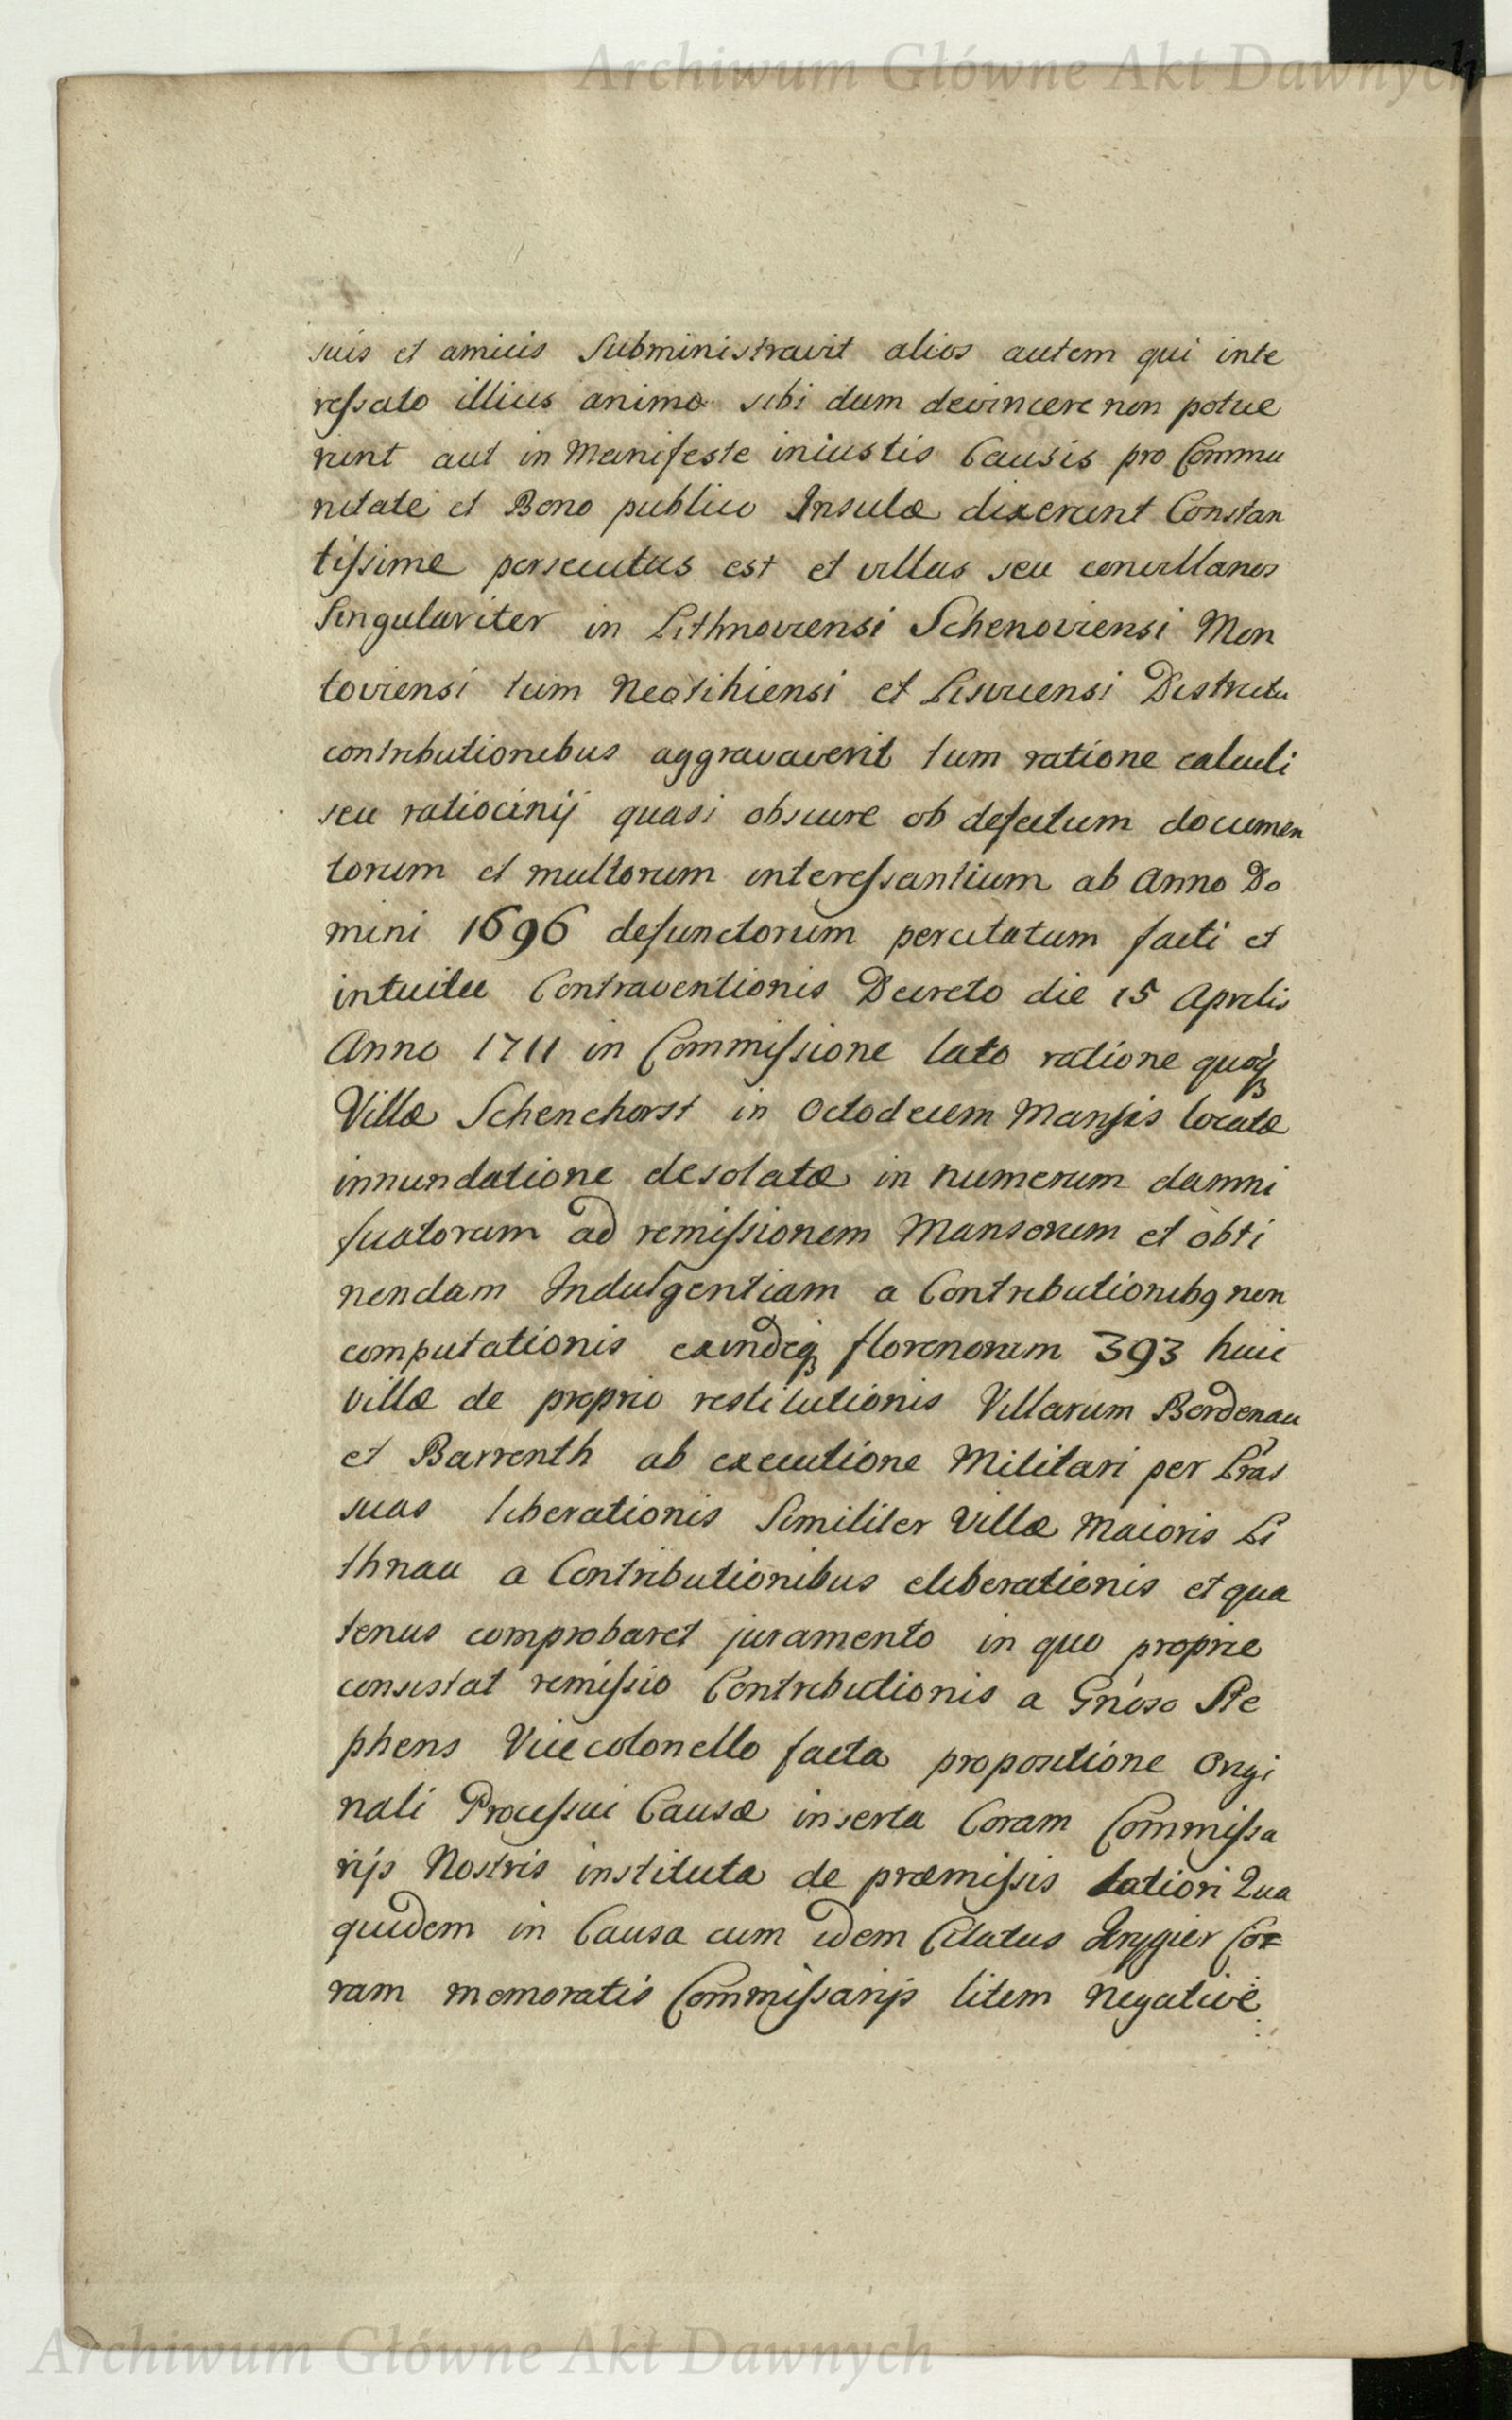 Archiwum Główne Akt Dawnych
suis et amicis Subministravit alios autem qui inte
ressato illius animo sibi dum devincere non potue
runt aut in Manifeste iniustis Causis pro Commu
nitate et Bono publico Insulæ dixerunt Constan
tissime persecutus est et villas seu convillanos
Singulariter in Lithnoviensi Schenoviensi Mon
toviensi tum Neotihiensi et Lisviensi Districtu
contributionibus aggravaverit tum ratione calculi
seu ratiocinij quasi obscure ob defectum documen
torum et multorum interessantium ab Anno Do
mini 1696 defunctorum percitatum facti et
intuitu Contraventionis Decreto die 15 Aprilis
Anno 1711 in Commissione lato ratione quoq
Villæ Schenchorst in Octodecem Mansis locatæ
innundatione desolatæ in numerum damni
ficatorum ad remissionem Mansorum et obti
nendam Indulgentiam a Contributionibq non
computationis exindeq florenorum 393 huic
Villæ de proprio restitutionis Villarum Berdenau
et Barrenth ab executione Militari per Lras
suas liberationis Similiter Villæ Maioris Li
thnau a Contributionibus eliberationis et qua
tenus comprobaret juramento in quo proprie
consistat remissio Contributionis a Gnoso Ste
phens Vicecolonello facta propositione Origi
nali Processui Causæ inserta Coram Commissa
rijs Nostris instituta de præmissis latiori Qua
quidem in Causa cum idem Citatus Co=
ram memoratis Commissarijs litem Negative
Archiwum Główne Akt Dawnych